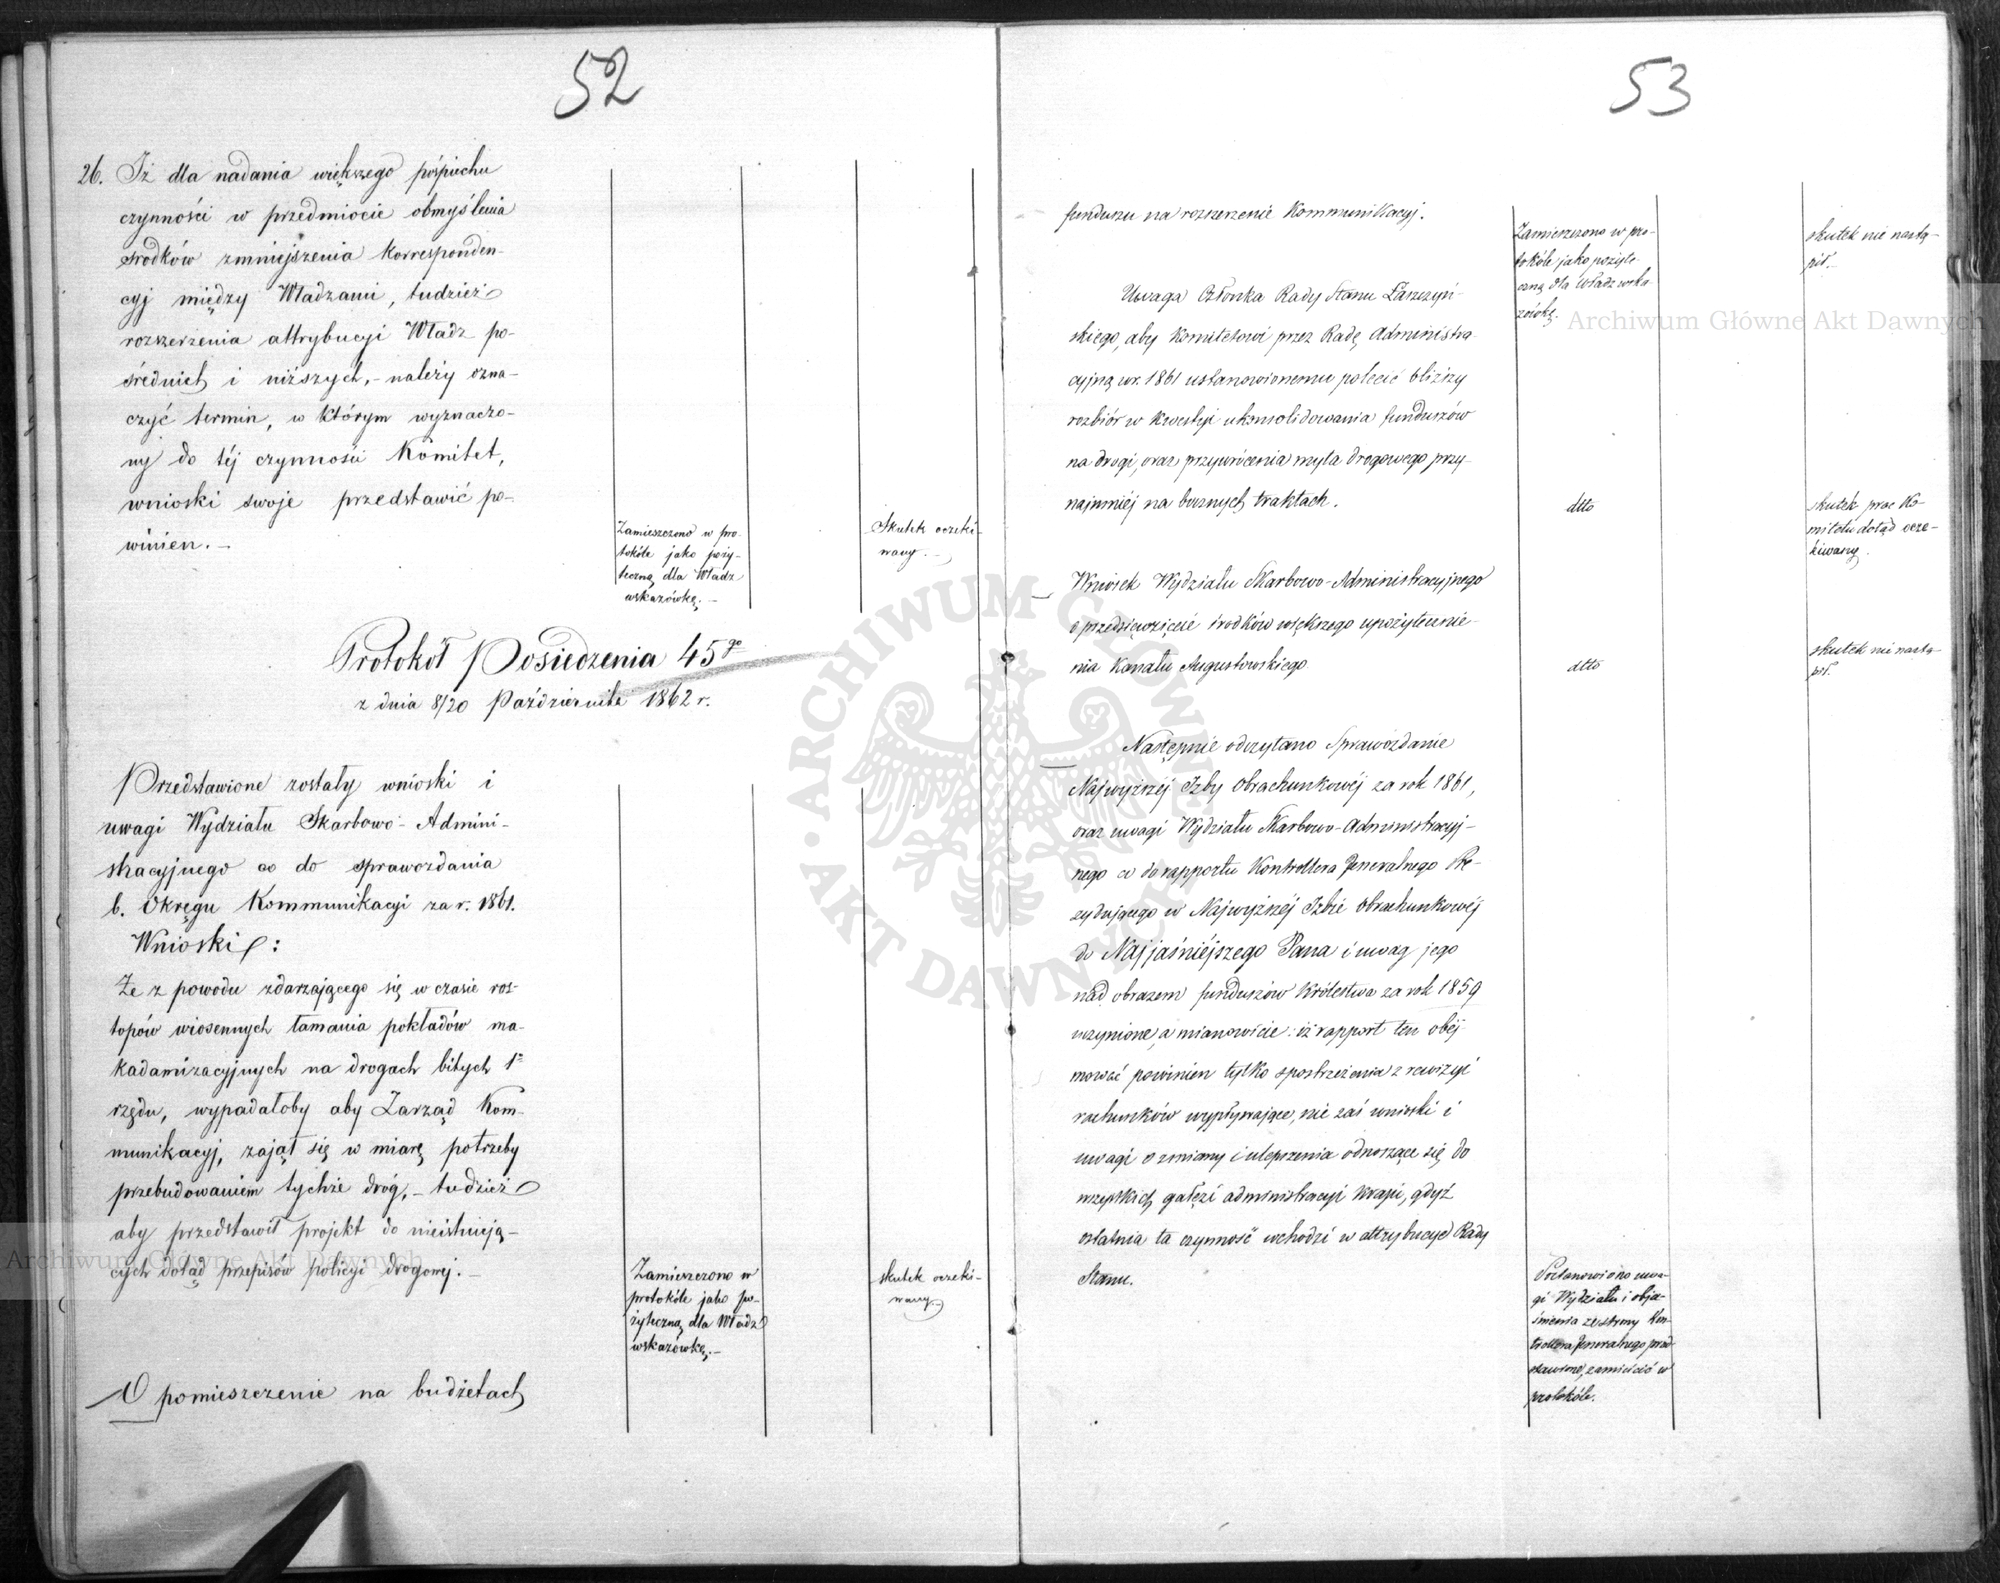 52
26. Iż dla nadania większego pośpiechu
czynności w przedmiocie obmyślenia
środków zmniejszenia korresponden-
cyj między Władzami, tudzież
rozszerzenia attrybucyi Władz po-
średnich i niższych, - należy ozna-
czyć termin, w którym wyznaczo-
ny do téj czynności Komitet,
wnioski swoje przedstawić po-
winien. -
Zamieszczono w pro-
tokóle jako poży-
teczną dla Władz
wskazówkę. -
Skutek oczeki-
wany. -
Protokół Posiedzenia 45go
z dnia 8/20 Października 1862 r.
Przedstawione zostały wnioski i
uwagi Wydziału Skarbowo-Admini-
stracyjnego co do sprawozdania
b. Okręgu Kommunikacyi za r. 1861.
Wnioski:
Że z powodu zdarzającego się w czasie roz-
topów wiosennych łamania pokładów ma-
kadamizacyjnych na drogach bitych 1o
rzędu, wypadałoby aby Zarząd Kom-
munikacyj, zajął się w miarę potrzeby
przebudowaniem tychże dróg, - tudzież
aby przedstawił projekt do nieistnieją-
cych dotąd przepisów policyi drogowej. -
Zamieszczono w
protokóle jako po-
żyteczną dla Władz
wskazówkę. -
skutek oczeki-
wany.
O pomieszczenie na budżetach
53
funduszu na rozszerzenie Kommunikacyj.
Zamieszczono w pro-
tokóle jako pożyte-
czną dla Władz wska-
zówkę.
skutek nie nastą-
pił. -
Uwaga Członka Rady Stanu Łaszczyń-
skiego, aby Komitetowi przez Radę Administra-
cyjną w r. 1861 ustanowionemu polecić bliższy
rozbiór w kwestyi ukonsolidowania funduszów
na drogi, oraz przywrócenia myta drogowego przy-
najmniéj na bocznych traktach.
dtto
skutek prac Ko-
mitetu dotąd ocze-
kiwany.
Wniosek Wydziału Skarbowo-Administracyjnego
o przedsięwzięcie środków większego upożytecznie-
nia Kanału Augustowskiego
dtto
skutek nie nastą-
pił.
Następnie odczytano Sprawozdanie
Najwyższéj Izby Obrachunkowéj za rok 1861,
oraz uwagi Wydziału Skarbowo-Administracyj-
nego co do rapportu Kontrollera Jeneralnego Pre-
zydującego w Najwyższéj Izbie Obrachunkowéj
do Najjaśniéjszego Pana i uwag jego
nad obrazem funduszów Królestwa za rok 1859
uczynione, a mianowicie: iż rapport ten obej-
mować powinien tylko spostrzeżenia z rewizyi
rachunków wypływające, nie zaś wnioski i
uwagi o zmiany i ulepszenia odnoszące się do
wszystkich gałęzi administracyi kraju, gdyż
ostatnia ta czynność wchodzi w attrybucye Rady
Stanu.
Postanowiono uwa-
gi Wydziału i obja-
śnienia ze strony Kon-
trollera Jeneralnego przed-
stawione, zamieścić w
protokóle.
Archiwum Główne Akt Dawnych
Archiwum Główne Akt Dawnych
ARCHIWUM GŁÓWNE AKT DAWNYCH